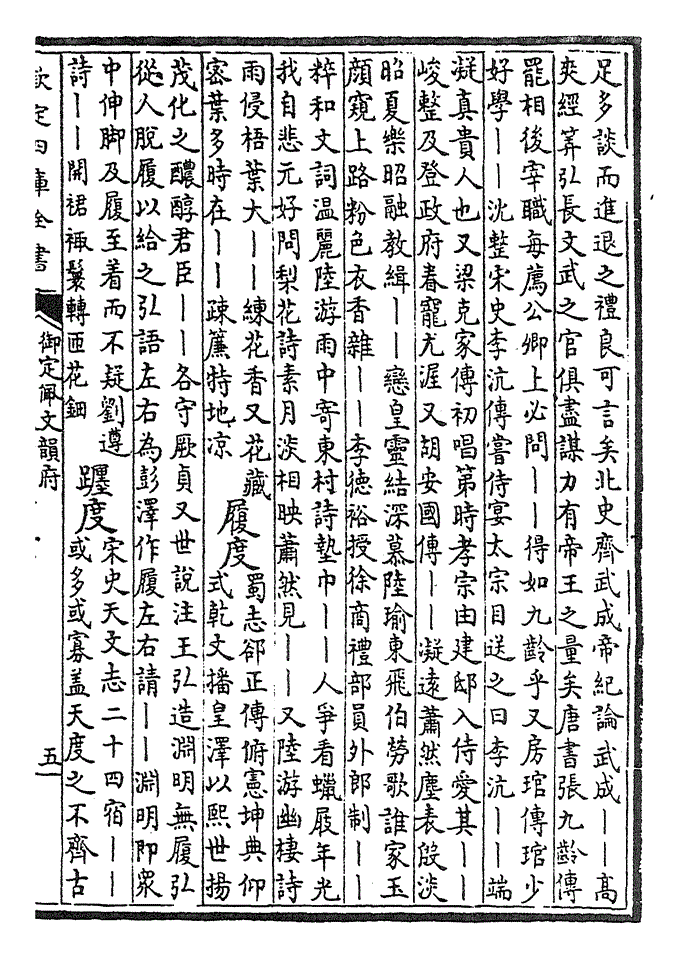 足多談而進退之禮良可言矣北史齊武成帝紀論武成——高
爽經筭弘長文武之官俱盡謀力有帝王之量矣唐書張九齡傳
罷相後宰職每薦公卿上必問——得如九齡乎又房琯傳琯少
好學——沈整宋史李沆傳嘗侍宴太宗目送之曰李沆——端
凝真貴人也又梁克家傳初唱第時孝宗由建邸入侍愛其——
峻整及登政府眷寵尤渥又胡安國傳——凝遠蕭然塵表殷淡
昭夏樂昭融教緝——戀皇靈結深慕陸瑜東飛伯勞歌誰家玉
顏窺上路粉色衣香雜——李德裕授徐商禮部員外郎制——
粹和文詞温麗陸游雨中寄東村詩墊巾——人爭看蠟屐年光
我自悲元好問梨花詩素月淡相映蕭然見——又陸游幽棲詩
雨侵梧葉大——練花香又花藏
密葉多時在——疎簾特地凉
履度
蜀志郤正傳俯憲坤典仰
式乾文播皇澤以熙世揚
茂化之醲醇君臣——各守厥貞又世說注王弘造淵明無履弘
從人脫履以給之弘語左右為彭澤作履左右請——淵明即衆
中伸脚及履至着而不疑劉遵
詩——開裙衱鬟轉匝花鈿
躔度
宋史天文志二十四宿——
或多或寡蓋天度之不齊古
欽定四庫全書
御定佩文韻府
五